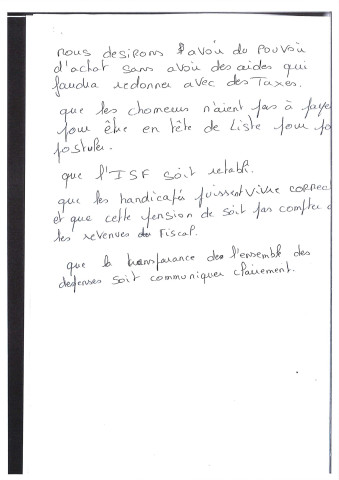 nous desirons avoir du pouvoir
d'achat sans avoir des aides qui
faudra redonner avec des Taxes.
que les chomeurs n'aient pas à paye
pour être en tête de Liste pour po
postuler.
que l'ISF soit retabli.
que les handicapés puissent vivre correc
et que cette pension de soit pas compter d
les revenues Fiscal.
que la transparance de l'ensemble des
depenses soit communiquer clairement.